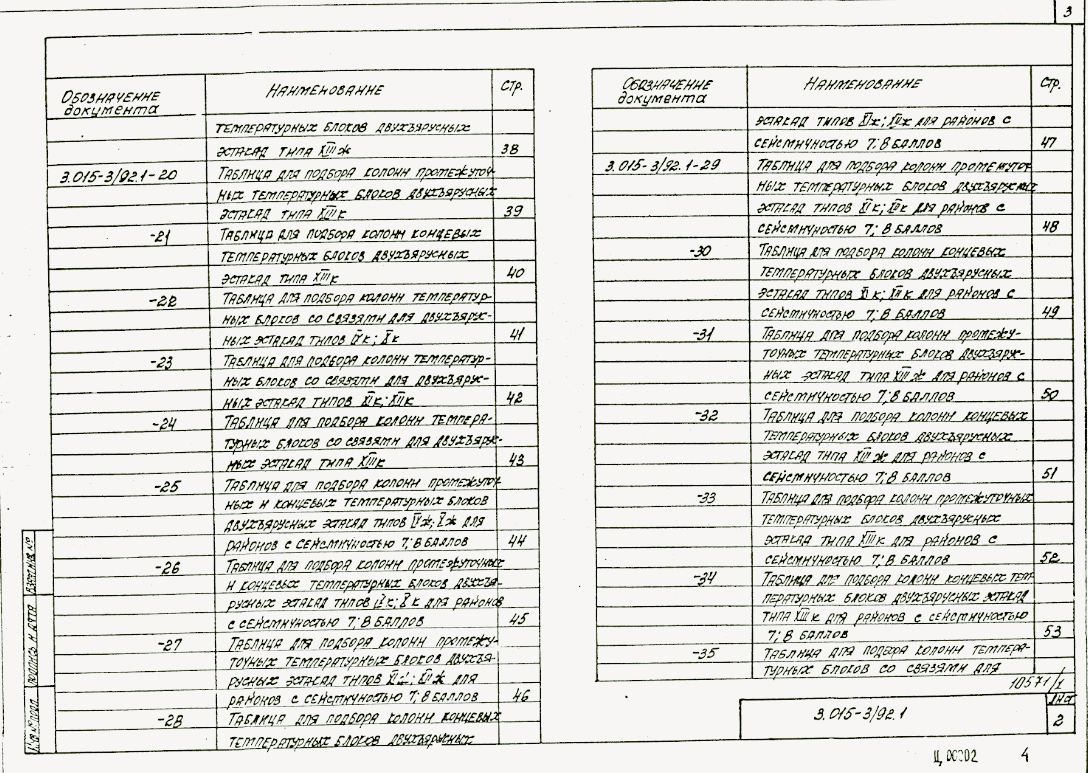 3
Обозначение документа Наименование Стр.
температурных блоков двухъярусных
эстакад типа XIIIж 38
3.015-3/92.1-20 Таблица для подбора колонн промежуточ-
ных температурных блоков двухъярусных
эстакад типа XIIIк 39
-21 Таблица для подбора колонн концевых
температурных блоков двухъярусных
эстакад типа XIIIк 40
-22 Таблица для подбора колонн температур-
ных блоков со связями для двухъярус-
ных эстакад типов IXк; Xк 41
-23 Таблица для подбора колонн температур-
ных блоков со связями для двухъярус-
ных эстакад типов XIк; XIIк 42
-24 Таблица для подбора колонн темпера-
турных блоков со связями для двухъярус-
ных эстакад типа XIIIк 43
-25 Таблица для подбора колонн промежуточ-
ных и концевых температурных блоков
двухъярусных эстакад типов IXж; Xж для
районов с сейсмичностью 7; 8 баллов 44
-26 Таблица для подбора колонн промежуточных
и концевых температурных блоков двухъя-
русных эстакад типов IXк; Xк для районов
с сейсмичностью 7; 8 баллов 45
-27 Таблица для подбора колонн промежу-
точных температурных блоков двухъя-
русных эстакад типов XIж; XIIж для
районов с сейсмичностью 7; 8 баллов 46
-28 Таблица для подбора колонн концевых
температурных блоков двухъярусных
Обозначение документа Наименование Стр.
эстакад типов XIж; XIIж для районов с
сейсмичностью 7; 8 баллов 47
3.015-3/92.1-29 Таблица для подбора колонн промежуточ-
ных температурных блоков двухъярусных
эстакад типов XIк; XIIк для районов с
сейсмичностью 7; 8 баллов 48
-30 Таблица для подбора колонн концевых
температурных блоков двухъярусных
эстакад типов XIк; XIIк для районов с
сейсмичностью 7; 8 баллов 49
-31 Таблица для подбора колонн промежу-
точных температурных блоков двухъярус-
ных эстакад типа XIIIж для районов с
сейсмичностью 7; 8 баллов 50
-32 Таблица для подбора колонн концевых
температурных блоков двухъярусных
эстакад типа XIIIж для районов с
сейсмичностью 7; 8 баллов 51
-33 Таблица для подбора колонн промежуточных
температурных блоков двухъярусных
эстакад типа XIIIк для районов с
сейсмичностью 7; 8 баллов 52
-34 Таблица для подбора колонн концевых тем-
пературных блоков двухъярусных эстакад
типа XIIIк для районов с сейсмичностью
7; 8 баллов 53
-35 Таблица для подбора колонн темпера-
турных блоков со связями для
10571/1
3.015-3/92.1
Лист
2
Инв.№ подл. Подпись и дата Взам.инв.№
Ц 00202 4